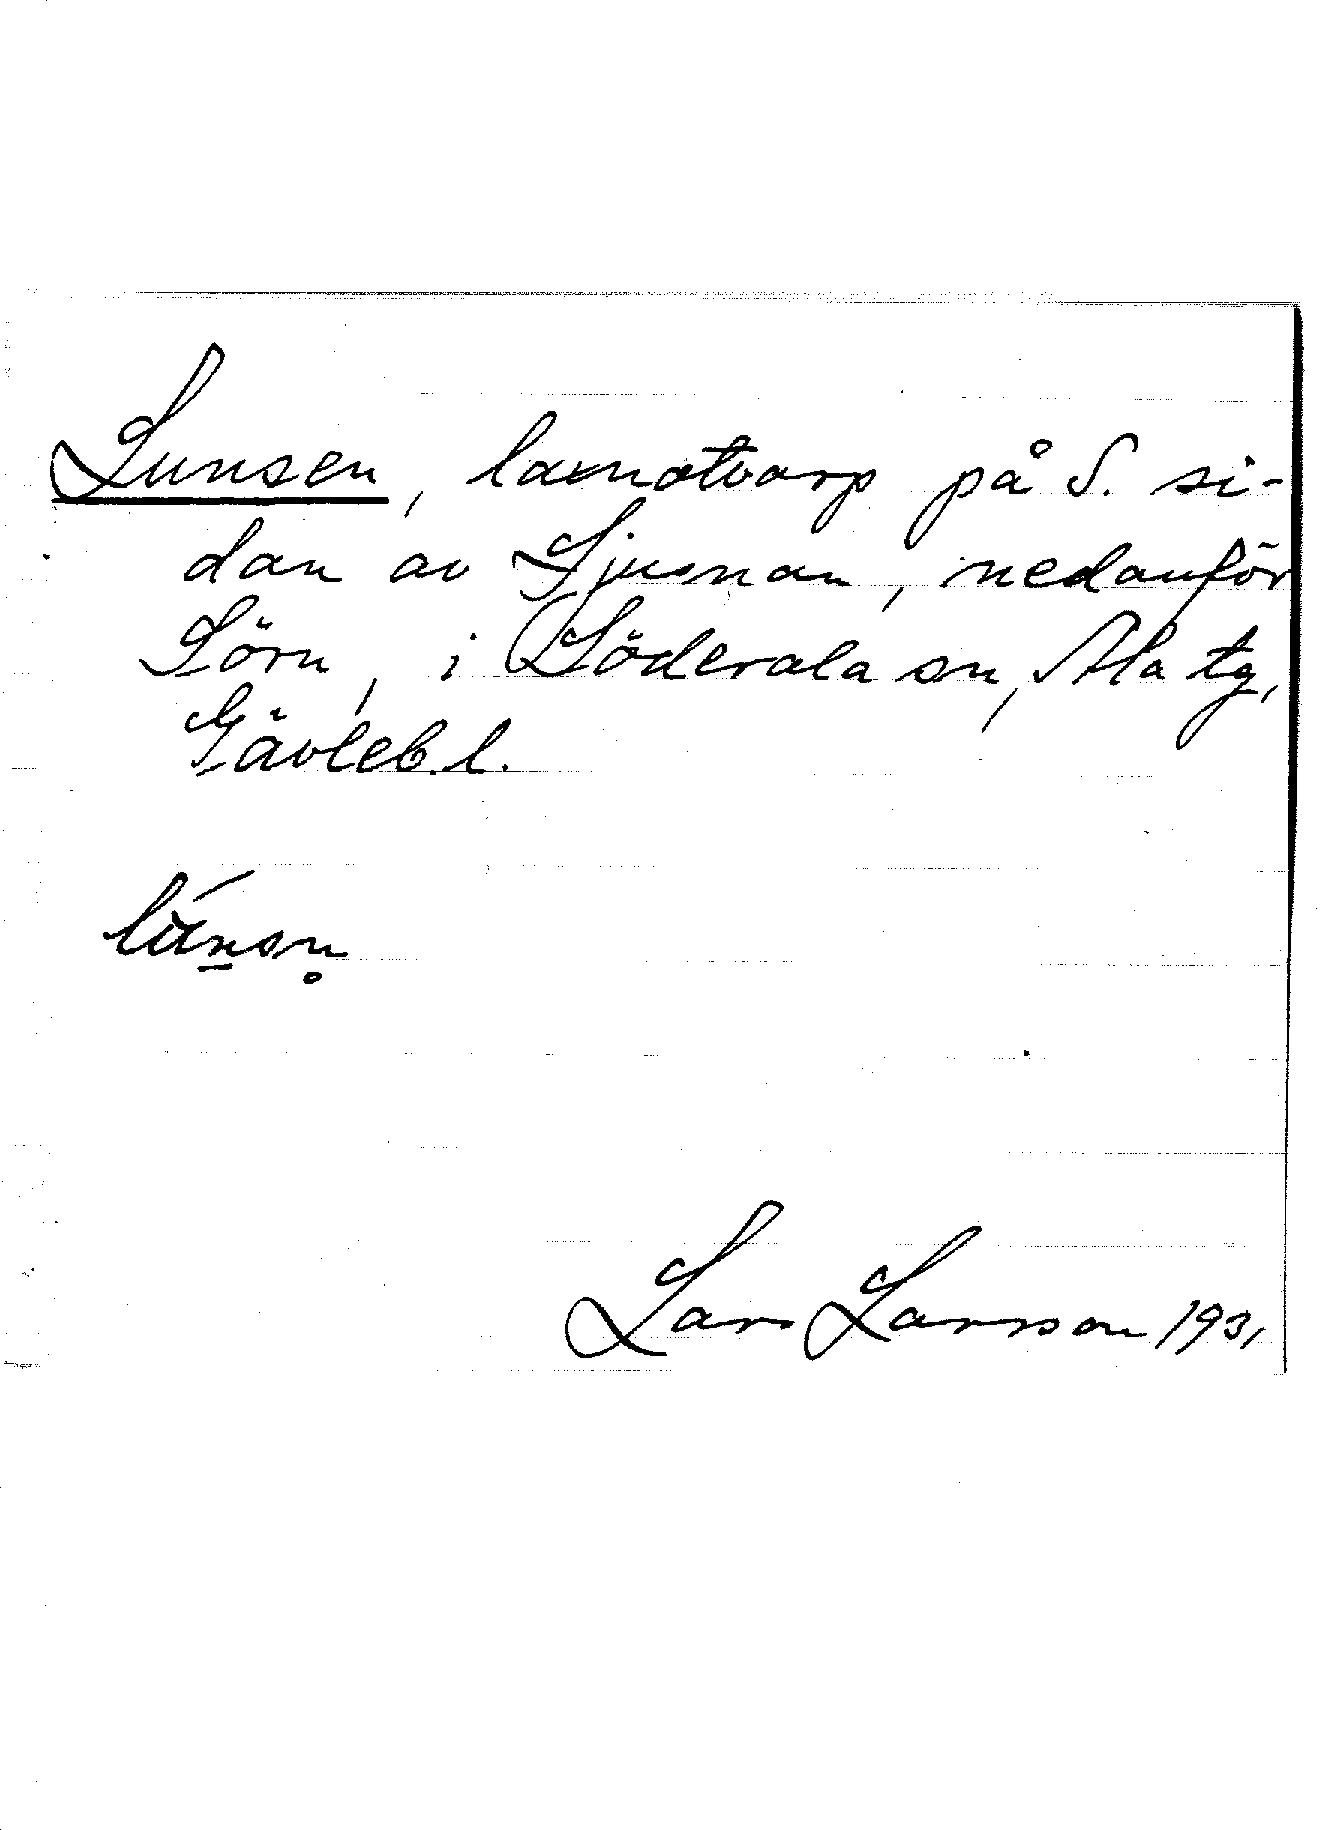 Lunsen, laxnotvarp på S. si-
dan av Ljusnan, nedanför
Sörn, i Söderala sn, Ala tg,
Gävleb. l.
Lars Larsson 1931